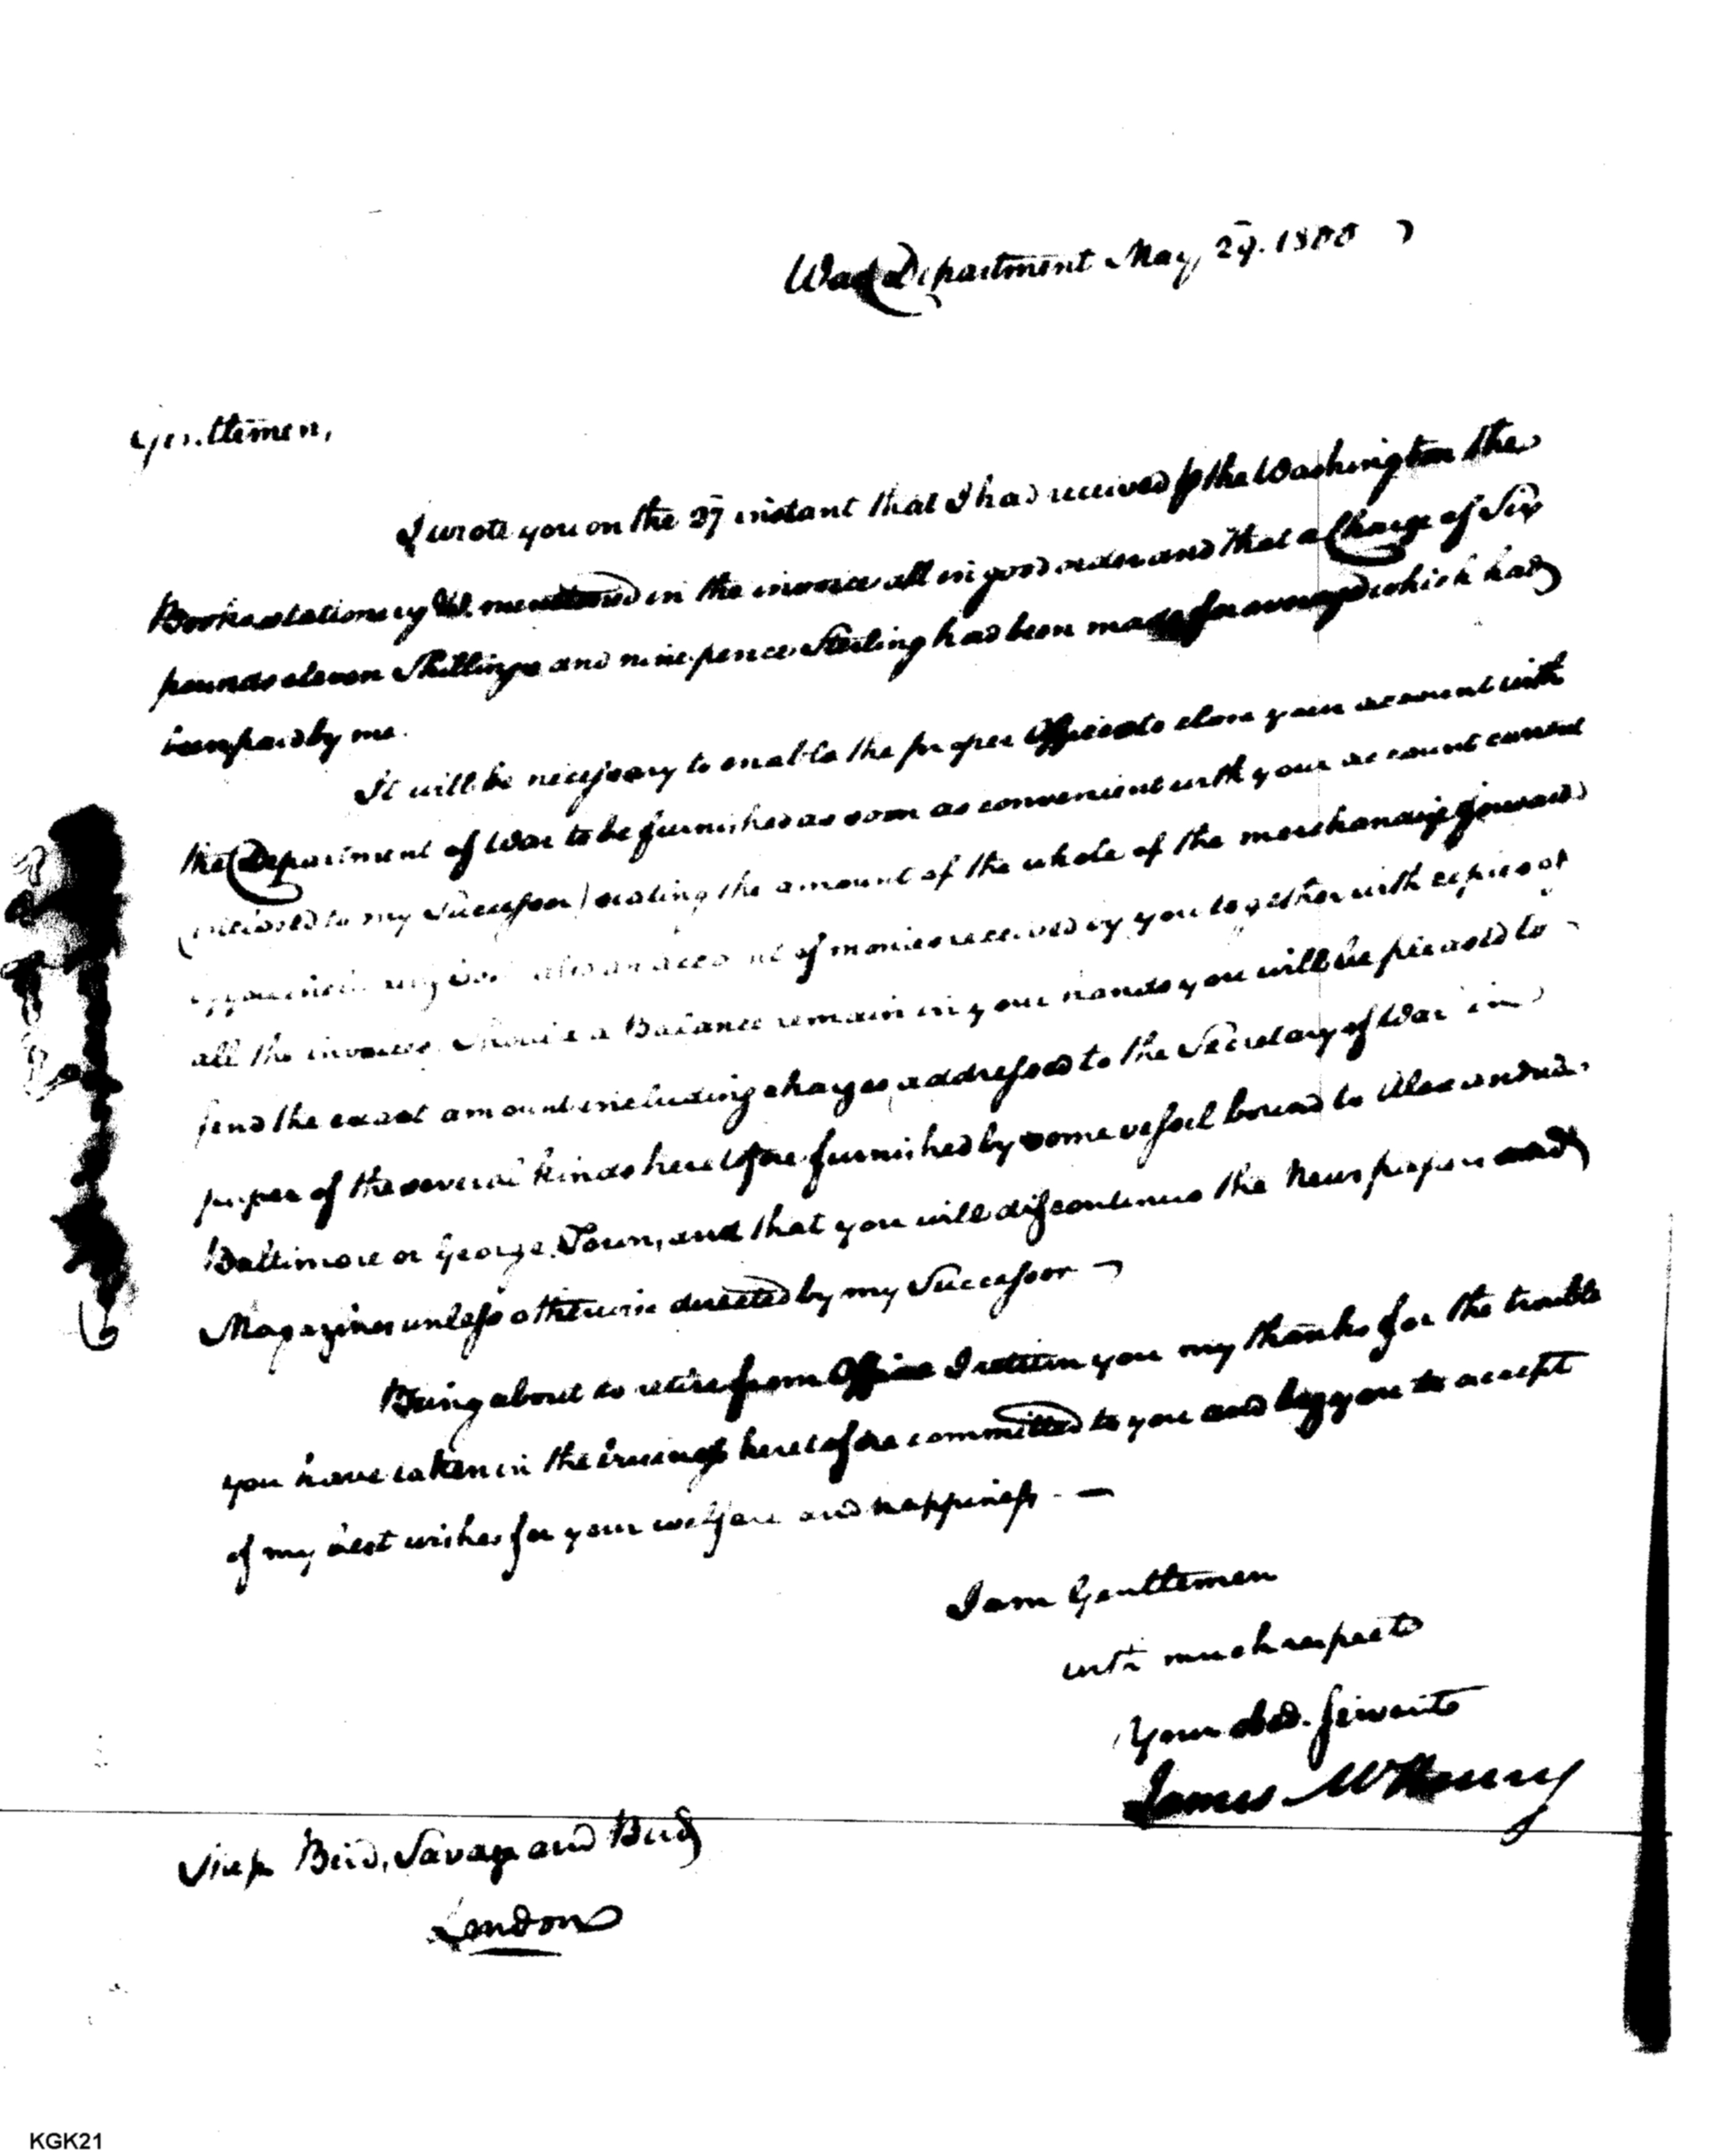 War Department May 29. 1800
Gentlemen,
I wrote you on the 27 instant that I had received p the Washington the
Books stationery &c. mentioned in the invoice all in good order and that a Charge of Six
pounds eleven Shillings and nine pence Sterling had been made for average which had
been paid by me.
It will be necessary to enable the proper Officer to close your account with
the Department of War to be furnished as soon as convenient with your account current
(inclosed to my Successor) stating the amount of the whole of the merchandize forward
also an account of monies received by you together with copies of
all the invoices. Should a Balance remain in your hands you will be pleased to
send the exact amount including charges addressed to the Secretary of War in
paper of the several kinds heretofore furnished by some vessel bound to Alexandria
Baltimore or George Town, and that you will discontinue the News papers and
Magazines unless otherwise directed by my Successor
Being about to retire from Office I return you my thanks for the trouble
you have taken in the business heretofore committed to you and beg you to accept
of my best wishes for your welfare and happiness
I am Gentlemen
with much respect
Your obed. Servant
James McHenry
Bird, Savage and Bird
London
KGK21